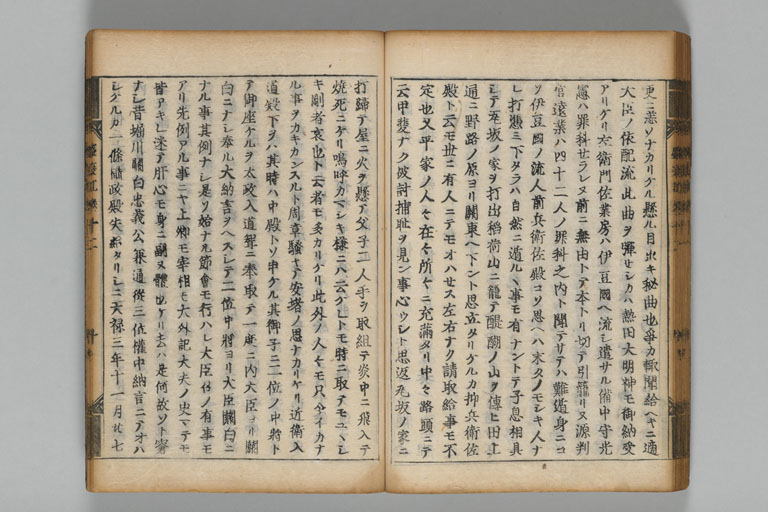 更ニ業ソナカリケル懸ル目出キ秘曲也爭カ輙聞給ヘキニ適
大臣ノ依配流此曲ヲ彈セシカハ熱田大明神モ御納受
アリケリ左衛門佐業房ハ伊豆國ヘ流シ遣サル備中守光
憲ハ罪科セラレヌ前ニ無由トテ本トリ切テ引籠リヌ源判
官遠業ハ四十二人ノ罪科之内ト聞テサテハ難遁身ニコ
ソ伊豆國ノ流人前兵衛佐殿コソ思ヘハ末タノモシキ人ナ
レ打憑ミ下タラハ自然ニ遁ルヽ事モ有ナントテ子息相具
シテ瓦坂ノ家ヲ打出稲荷山ニ籠テ醍醐ノ山ヲ傳ヒ田上
通ニ野路ノ原ヨリ關東ヘ下ント思立タリケルカ抑兵衛佐
殿ト云モ世ニ有人ニテモオハセス左右ナク請取給事モ不
定也又平家ノ人々在々所々ニ充滿タリ中々路頭ニテ
云甲斐ナク被討捕耻ヲ見ン事心ウシト思返瓦坂ノ家ニ
打歸テ屋ニ火ヲ懸テ父子二人手ヲ取組テ炎中ニ飛入テ
焼死ニケリ嗚呼カマシキ様ニハ云ケレトモ時ニ取テモユヽシ
キ剛者哀也ト云者モ多カリケリ此外ノ人々モ只今イカナ
ル事ヲカキカンスルト周章騒キテ安堵ノ思ナカリケリ近衛入
道殿下ヲハ其時ハ中殿トソ申ケル其御子二位ノ中將ト
テ御座ケルヲ太政入道聟ニ奉取テ一度ニ内大臣ヨリ關
白ニナシ奉ル大納言ヲヘスシテ二位中將ヨリ大臣關白ニ
ナル事其例ナシ是ソ始ナル節會モ行ハレ大臣召ノ有事モ
アリ先例アル事ニヤ上卿モ宰相モ大外記大夫ノ史マテモ
皆アキレ迷テ肝心モ身ニ副ヌ體也ケリ去ハ是何故ソト尋
ナシ昔堀川關白忠義公兼通從三位權中納言ニテオハ
シケルカ一條攝政殿失給タリシニ天禄三年十一月廿七